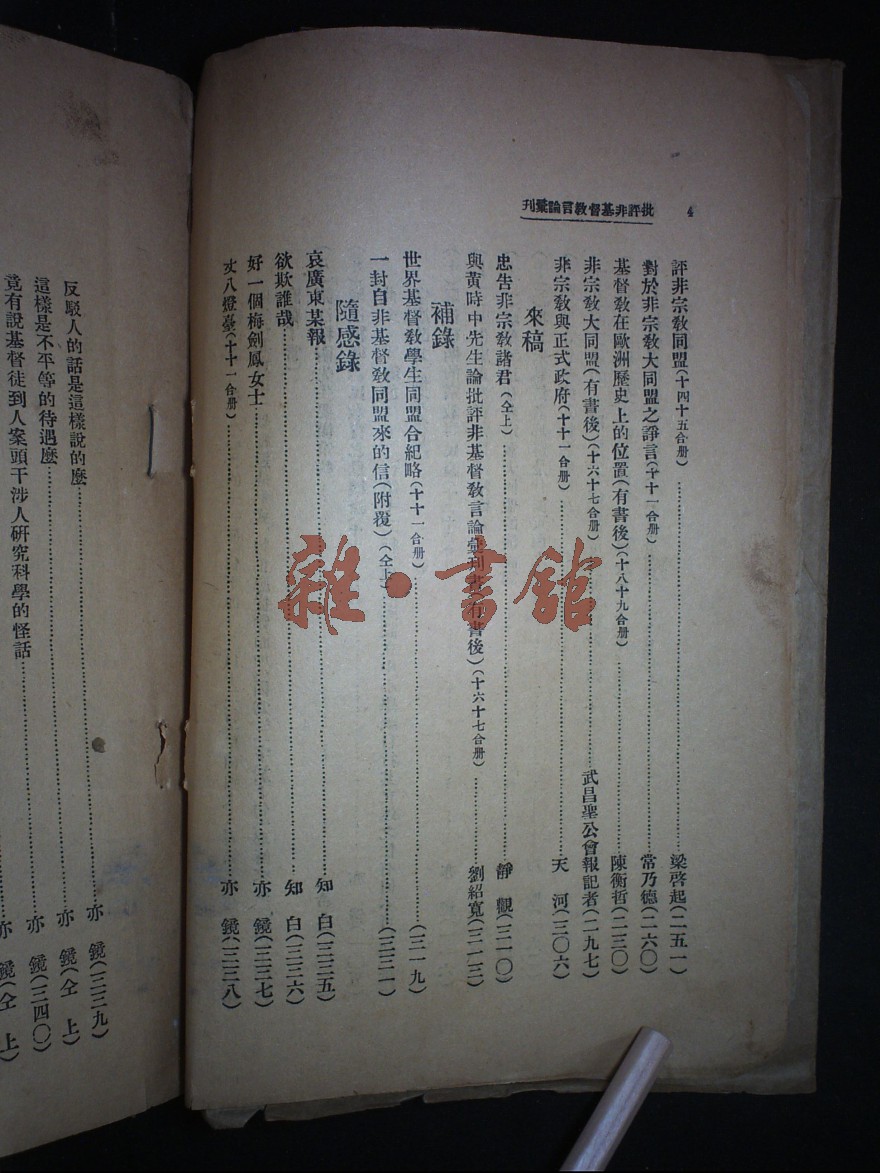 批評非基督教言論彙刊 4
評非宗教同盟(十四十五合册)……梁啓起(二五一)
對於非宗教大同盟之諍言(十十一合册)……常乃德(二六〇)
基督教在歐洲歷史上的位置(有書後)(十八十九合册)……陳衡哲(二三〇)
非宗教大同盟(有書後)(十六十七合册)……武昌聖公會報記者(二九七)
非宗教與正式政府(十十一合册)……天 河(三〇六)
來稿
忠告非宗教諸君(仝上)……靜 觀(三一〇)
與黃時中先生論批評非基督教言論彙刊書(有書後)(十六十七合册)……劉紹寬(三一三)
補錄
世界基督教學生同盟合紀略(十十一合册)……(三一九)
一封自非基督教同盟來的信(附覆)(仝上)……(三三一)
隨感錄
哀廣東某報……知 白(三三五)
欲欺誰哉……知 白(三三六)
好一個梅劍鳳女士……亦 鏡(三三七)
丈八燈臺(十十一合册)……亦 鏡(三三八)
反駁人的話是這樣說的麼……亦 鏡(三三九)
這樣是不平等的待遇麼……亦 鏡(仝 上)
竟有說基督徒到人案頭干涉人研究科學的怪話……亦 鏡(三四〇)
亦 鏡(仝 上)
雜·書館